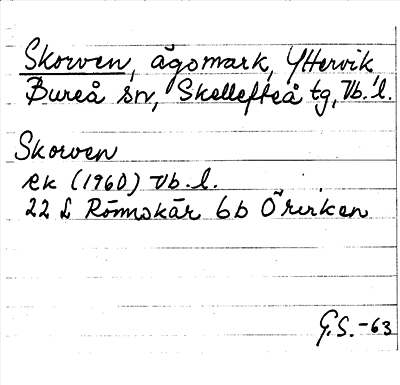 Skorven, ägomark, Yttervik
Bureå sn, Skellefteå tg, Vb. l.
Skorven
ek (1960) Vb. l.
22 L Rönnskär 6b Örviken
G.S. -63